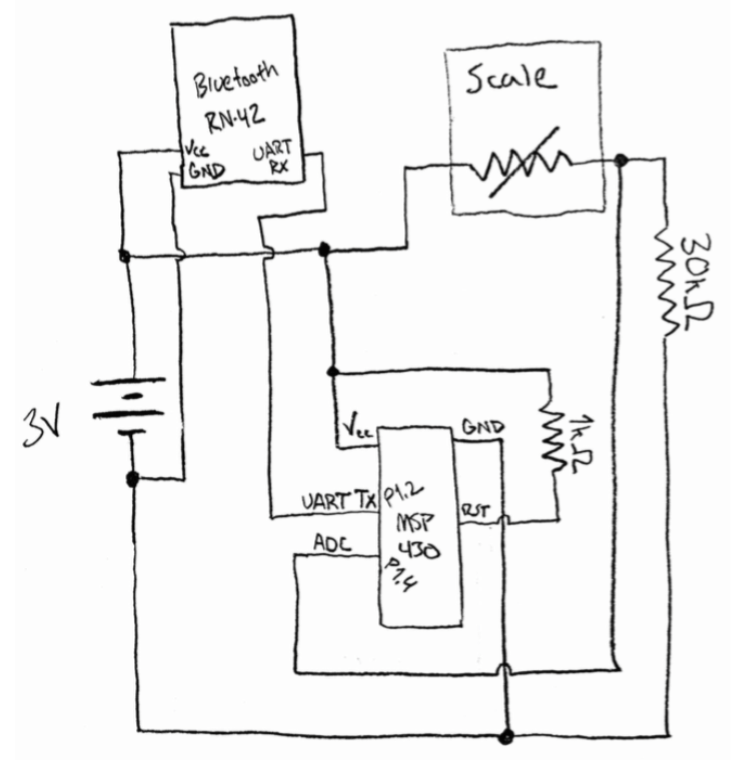 Bluetooth
RN-42
Vcc
GND
UART
RX
Scale
30kΩ
3V
1kΩ
Vcc
GND
UART TX
P1.2
MSP
430
P1.4
RST
ADC